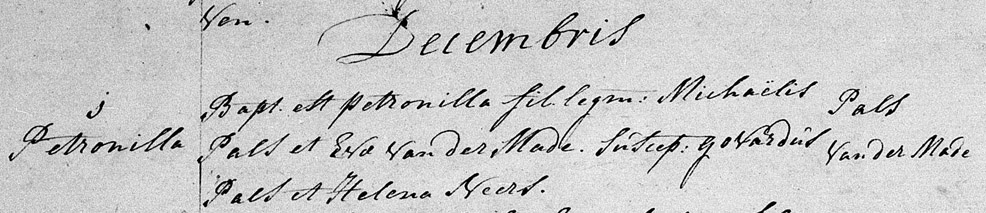 Ven.
Decembris
j Bapt. est petronilla fil. legm: Michaëlis Pals
Petronilla Pals et Eva Van der Made. Suscep: govardus Van der Made
Pals et Helena Neers.